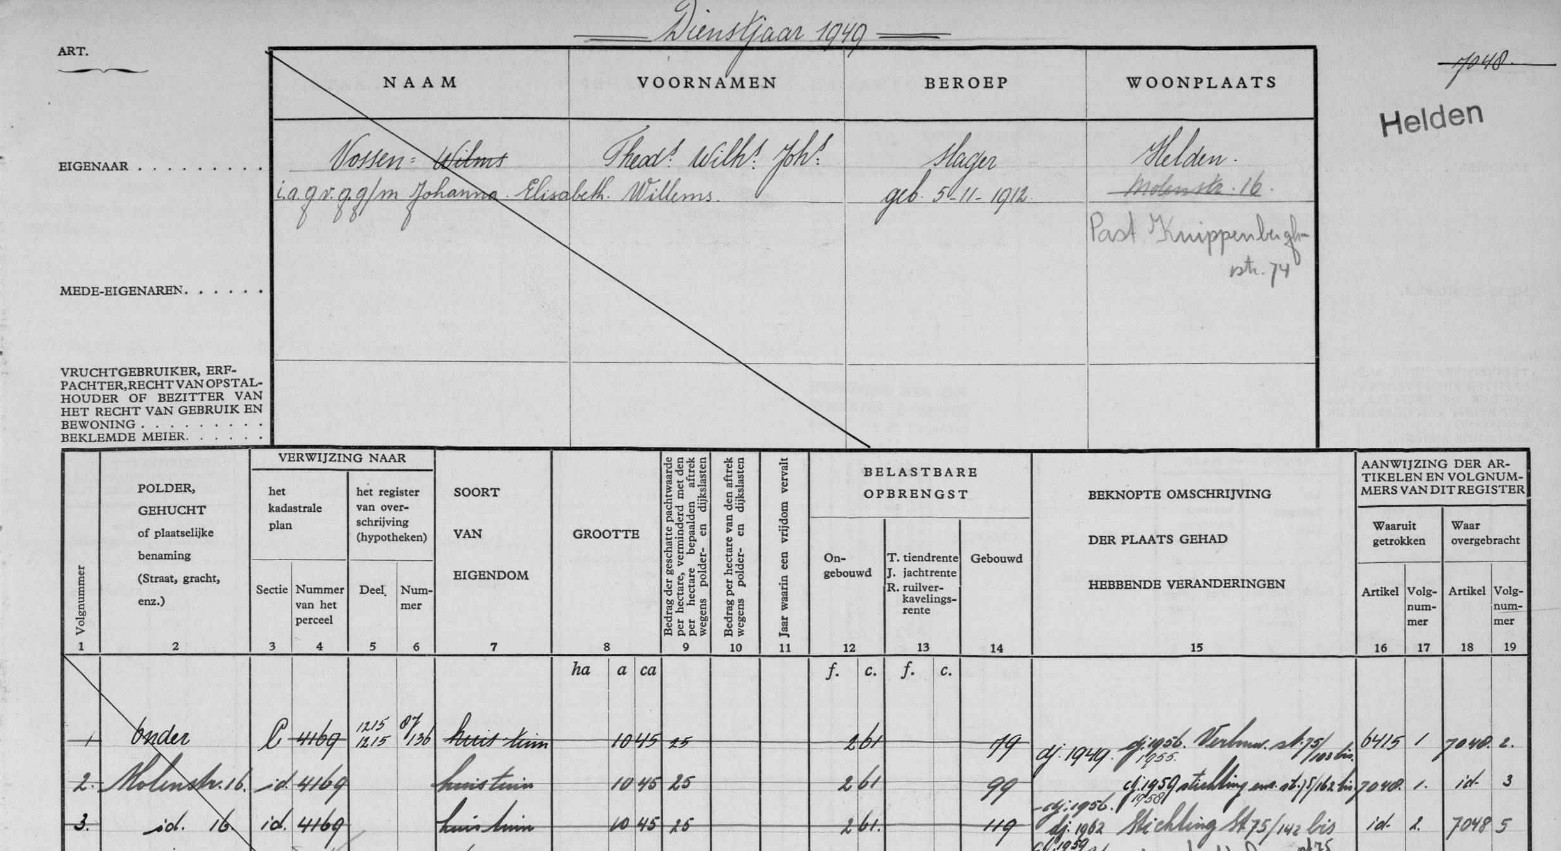 Dienstjaar 1949
ART.
7048
Helden
NAAM VOORNAMEN BEROEP WOONPLAATS
EIGENAAR Vossen = Wilms Theods. Wilhs. Johs. slager Helden.
i.a.g.v.g.g/m Johanna Elisabeth Willems. geb. 5-11-1912 Molenstr. 16.
Past. Knippenbergh-
str. 74
MEDE-EIGENAREN
VRUCHTGEBRUIKER, ERF-
PACHTER, RECHT VAN OPSTAL-
HOUDER OF BEZITTER VAN
HET RECHT VAN GEBRUIK EN
BEWONING
BEKLEMDE MEIER
Volgnummer
POLDER,
GEHUCHT
of plaatselijke
benaming
(Straat, gracht,
enz.)
VERWIJZING NAAR
het
kadastrale
plan
Sectie
Nummer
van het
perceel
het register
van over-
schrijving
(hypotheken)
Deel
Num-
mer
SOORT
VAN
EIGENDOM
GROOTTE
Bedrag der geschatte pachtwaarde
per hectare, verminderd met den
per hectare bepaalden aftrek
wegens polder- en dijkslasten
Bedrag per hectare van den aftrek
wegens polder- en dijkslasten
Jaar waarin een vrijdom vervalt
BELASTBARE
OPBRENGST
On-
gebouwd
T. tiendrente
J. jachtrente
R. ruilver-
kavelings-
rente
Gebouwd
BEKNOPTE OMSCHRIJVING
DER PLAATS GEHAD
HEBBENDE VERANDERINGEN
AANWIJZING DER AR-
TIKELEN EN VOLGNUM-
MERS VAN DIT REGISTER
Waaruit
getrokken
Waar
overgebracht
Artikel
Volg-
num-
mer
Artikel
Volg-
num-
mer
1 2 3 4 5 6 7 8 9 10 11 12 13 14 15 16 17 18 19
ha a ca f. c. f. c.
1215
1 Onder C 4169 1215 87/136 huis tuin 10 45 25 2 61 79 dj. 1949. dj. 1956. Verbouw. st. 75/102 bis. 6415 1 7048. 2.
1955.
2. Molenstr. 16. id. 4169 huis tuin 10 45 25 2 61 99 dj. 1959 stichting st. 75/162 bis 7048. 1. id. 3
dj. 1956. 1958
3. id. 16 id. 4169 huis tuin 10 45 25 2 61. 119 dj. 1962 Stichting St 75/142 bis id. 2. 7048 5
dj. 1959